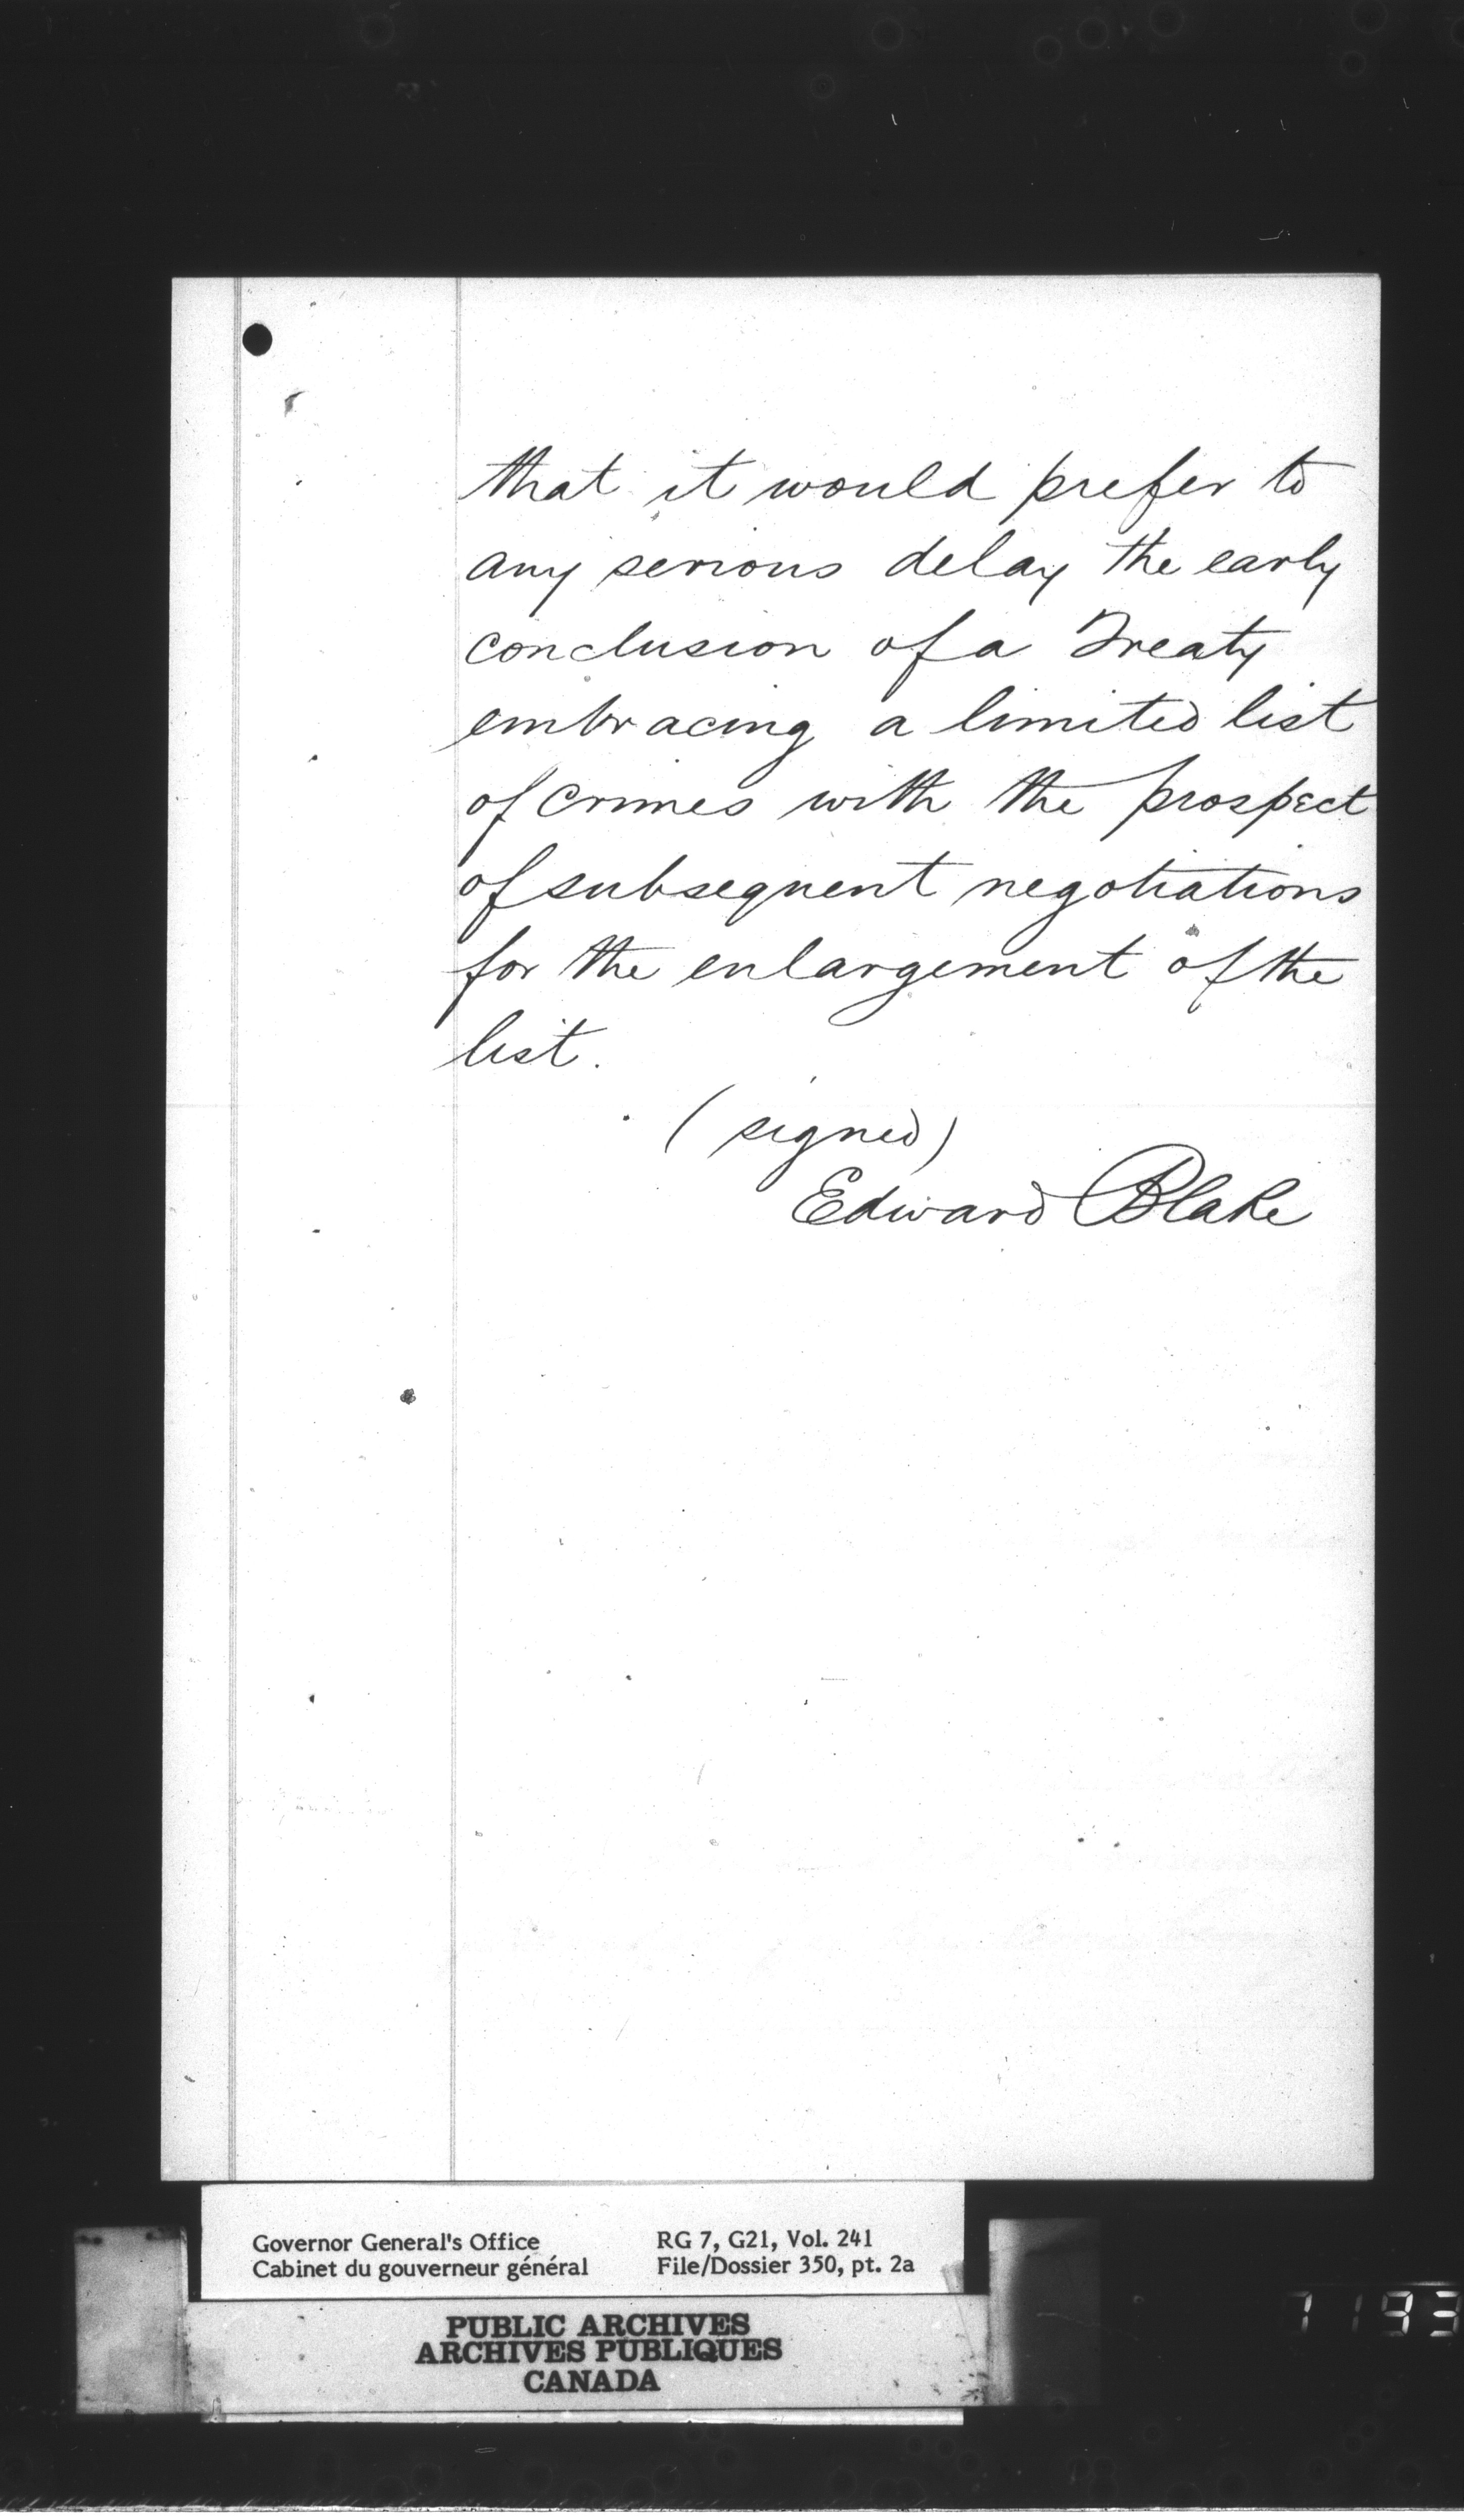 that it would prefer to
any serious delay the early
conclusion of a Treaty
embracing a limited list
of crimes with the prospect
of subsequent negotiations
for the enlargement of the
list.
(signed)
Edward Blake
Governor General's Office RG 7, G21, Vol. 241
Cabinet du gouverneur général File/Dossier 350, pt. 2a
PUBLIC ARCHIVES
ARCHIVES PUBLIQUES
CANADA
7193